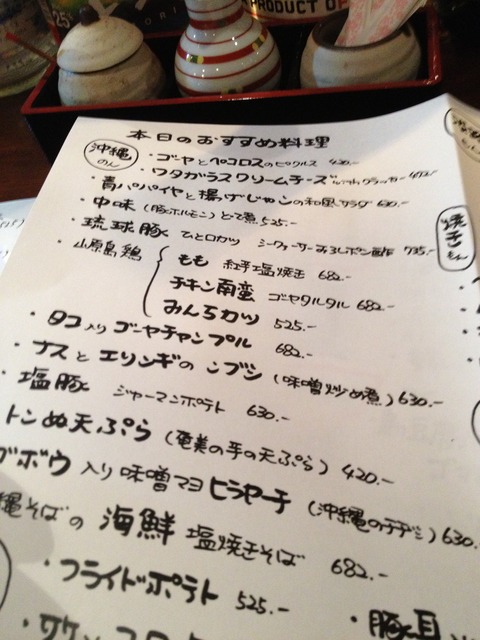 25%
PRODUCT OF
本日のおすすめ料理
沖縄
・ゴーヤとペコロスのピクルス 420.-
・ワタガラスクリームチーズ
・青パパイヤと揚げじゃこの和風サラダ 630.-
・中味(豚ホルモン)とっと煮 525.-
・琉球豚 ひと口カツ シークワーサーおろしポン酢 735.-
・山原島鶏
もも 紅芋塩焼き 682.-
チキン南蛮 ゴーヤタルタル 682.-
みんちカツ 525.-
・タコ入りゴーヤチャンプル 682.-
・ナスとエリンギの ンブシ(味噌炒め煮)630.-
・塩豚 ジャーマンポテト 630.-
トンぬ天ぷら(奄美の手の天ぷら)420.-
ゴボウ入り味噌マヨヒラヤーチ(沖縄のチヂミ)630.-
縄そばの 海鮮 塩焼きそば 682.-
・フライドポテト 525.-
・豚耳
焼き